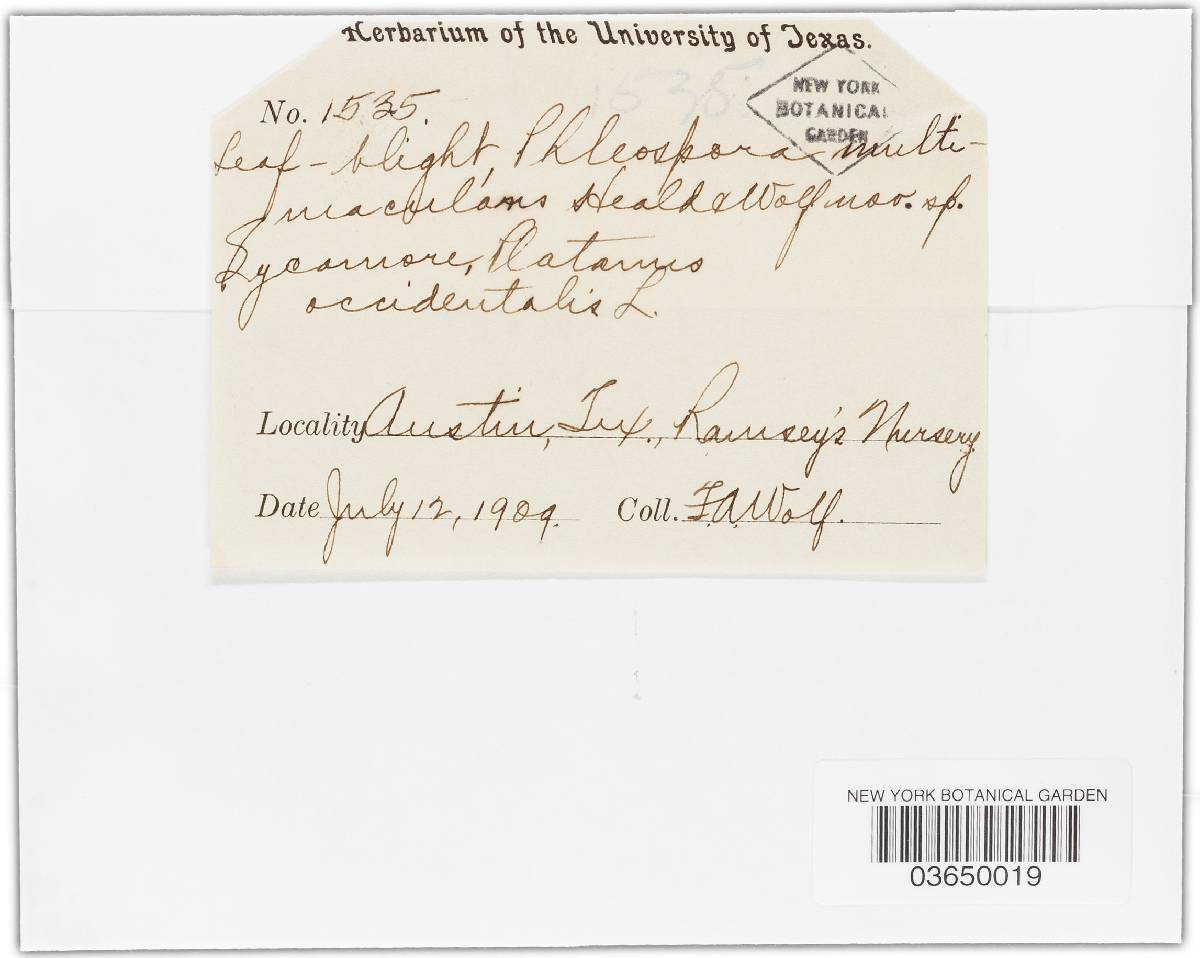 Herbarium of the University of Texas.
1535.
NEW YORK
BOTANICAL
GARDEN
No. 1535.
Leaf-blight, Phleospora multi-
maculans Heald & Wolf nov. sp.
Sycamore, Platanus
occidentalis L.
Locality Austin, Tex., Ramsey's Nursery
Date July 12, 1909. Coll. F.A. Wolf.
NEW YORK BOTANICAL GARDEN
03650019